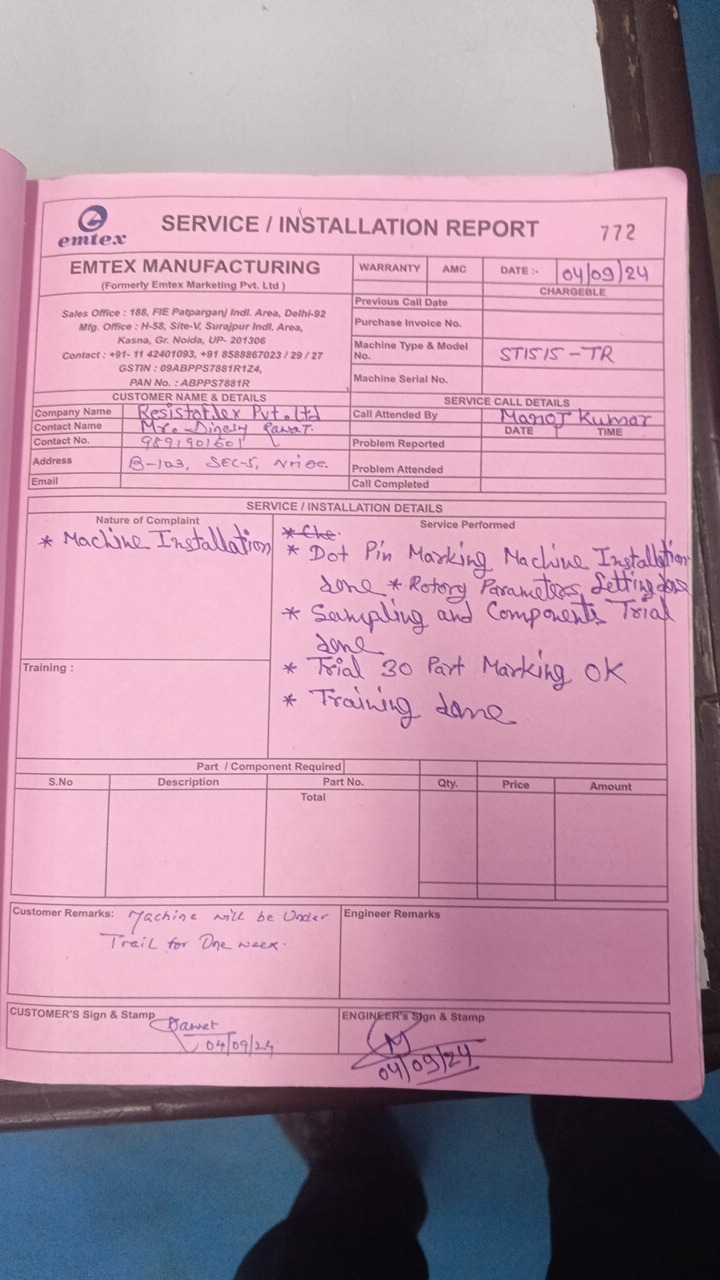 emtex
SERVICE / INSTALLATION REPORT
772
EMTEX MANUFACTURING
(Formerly Emtex Marketing Pvt. Ltd )
Sales Office : 188, FIE Patparganj Indl. Area, Delhi-92
Mfg. Office : H-58, Site-V, Surajpur Indl. Area,
Kasna, Gr. Noida, UP- 201306
Contact : +91- 11 42401093, +91 8588867023 / 29 / 27
GSTIN : 09ABPPS7881R1Z4,
PAN No. : ABPPS7881R
WARRANTY AMC DATE :- 04/09/24
CHARGEBLE
Previous Call Date
Purchase Invoice No.
Machine Type & Model No. ST1515-TR
Machine Serial No.
CUSTOMER NAME & DETAILS
Company Name Resistoflex Pvt. Ltd
Contact Name Mr. Dinesh Rawat.
Contact No. 9891901601
Address B-103, SEC-5,
Email
SERVICE CALL DETAILS
Call Attended By Manoj Kumar
DATE TIME
Problem Reported
Problem Attended
Call Completed
SERVICE / INSTALLATION DETAILS
Nature of Complaint
* Machine Installation
Training :
Service Performed
* Che.
* Dot Pin Marking Machine Installation
done * Rotory Parameters Setting done
* Sampling and Components Trial
done
* Trial 30 Part Marking OK
* Training done
Part / Component Required
S.No Description Part No. Qty. Price Amount
Total
Customer Remarks: Machine will be Under
Trail for One week.
Engineer Remarks
CUSTOMER'S Sign & Stamp
Rawat
04/09/24
ENGINEER's Sign & Stamp
04/09/24